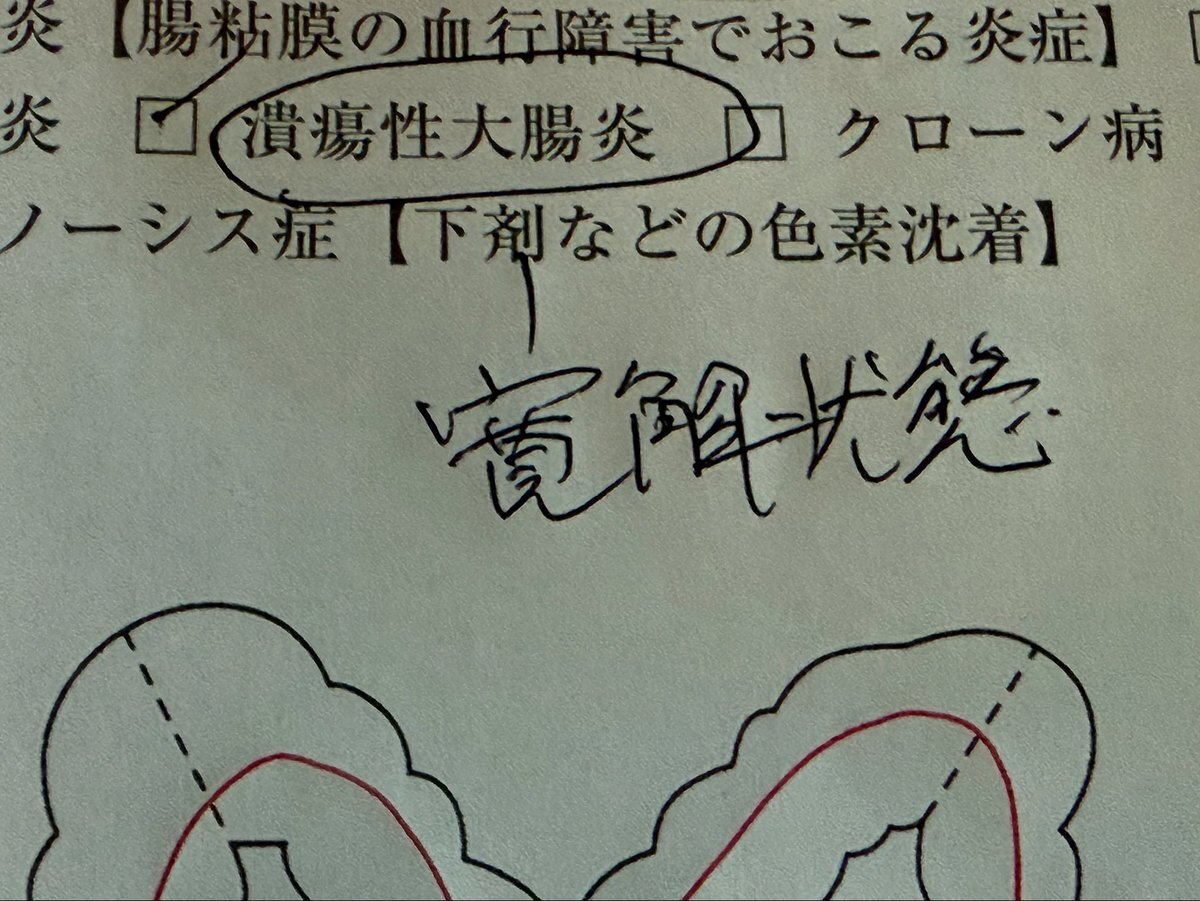 炎【腸粘膜の血行障害でおこる炎症】
炎 ☑ 潰瘍性大腸炎 □ クローン病
ノーシス症【下剤などの色素沈着】
寛解状態